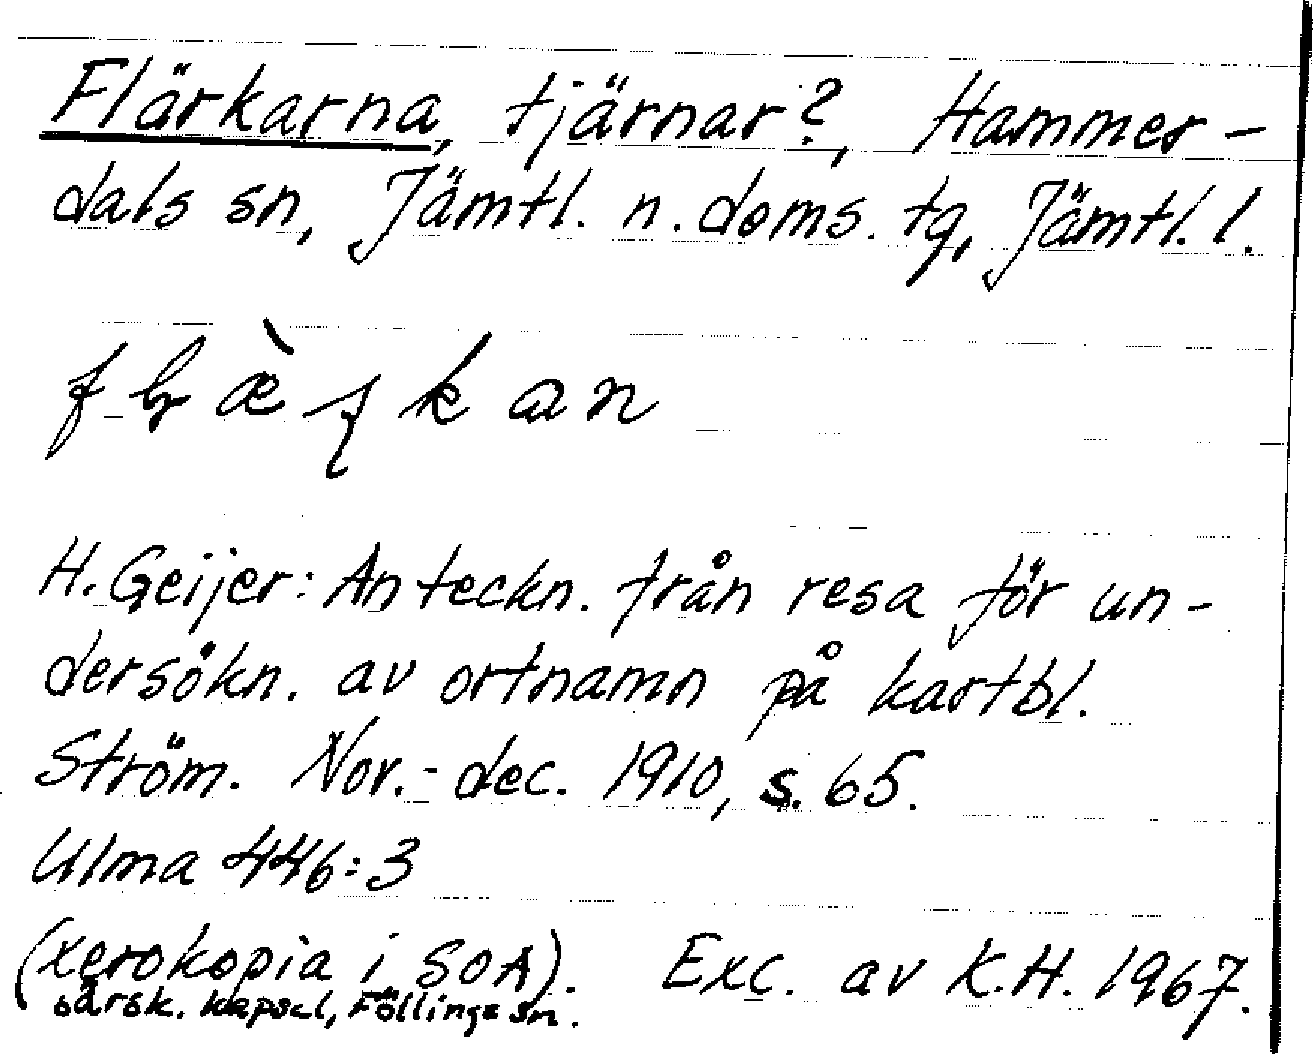 Flärkarna, tjärnar?, Hammer-
dals sn, Jämtl. n. doms. tg, Jämtl. l.
H. Geijer: Anteckn. från resa för un-
dersökn. av ortnamn på kartbl.
Ström. Nov.- dec. 1910, s. 65.
Ulma 446:3
(xerokopia i SOA). Exc. av K.H. 1967.
särsk. kapsel, Föllinge sn.